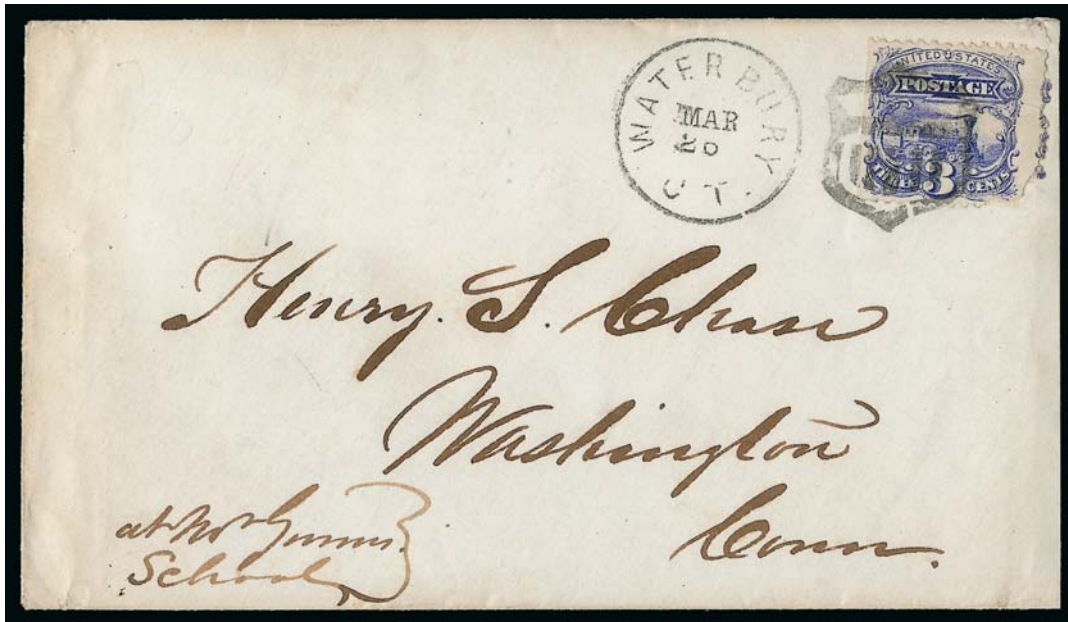 WATERBURY
MAR
20
CT.
UNITED STATES
POSTAGE
THREE 3 CENTS
Henry. S. Chase
Washington
Conn.
at Mr Gunns.
School